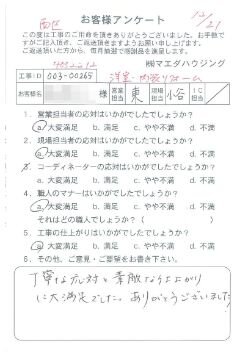 西区
12/21
お客様アンケート
この度は工事のご用命を頂きありがとうございました。お手数で
すがご記入頂き、ご返送頂きますようお願い申し上げます。
ご返送頂いた方から、毎月抽選で感謝品を進呈します。
㈱マエダハウジング
工事ID 003-00265 洋室・内装リフォーム
お客様名 様 営業担当 東 現場担当 小谷 IC担当
1. 営業担当者の応対はいかがでしたでしょうか?
a. 大変満足 b. 満足 c. やや不満 d. 不満
2. 現場担当者の応対はいかがでしたでしょうか?
a. 大変満足 b. 満足 c. やや不満 d. 不満
3. コーディネーターの応対はいかがでしたでしょうか?
a. 大変満足 b. 満足 c. やや不満 d. 不満
4. 職人のマナーはいかがでしたでしょうか?
a. 大変満足 b. 満足 c. やや不満 d. 不満
それはどの職人でしょうか?( )
5. 工事の仕上がりはいかがでしたでしょうか?
a. 大変満足 b. 満足 c. やや不満 d. 不満
6. その他、ご意見・ご要望をお書き下さい。
丁寧な応対と素敵な仕上がり
に大満足でした。ありがとうございました